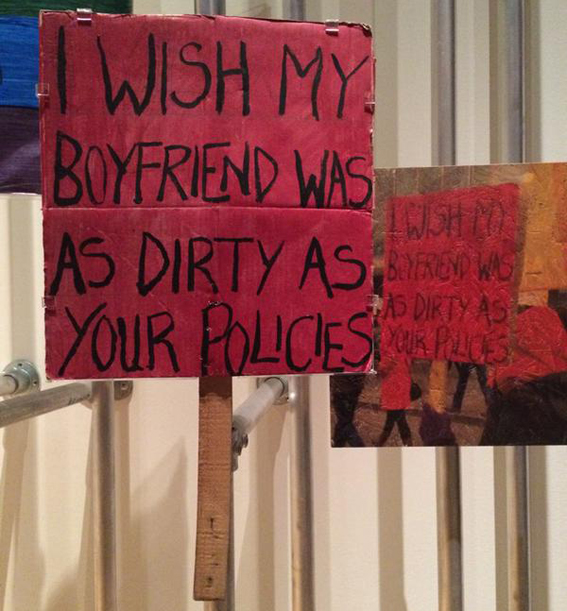 I WISH MY
BOYFRIEND WAS
AS DIRTY AS
YOUR POLICIES
I WISH MY
BOYFRIEND WAS
AS DIRTY AS
YOUR POLICIES